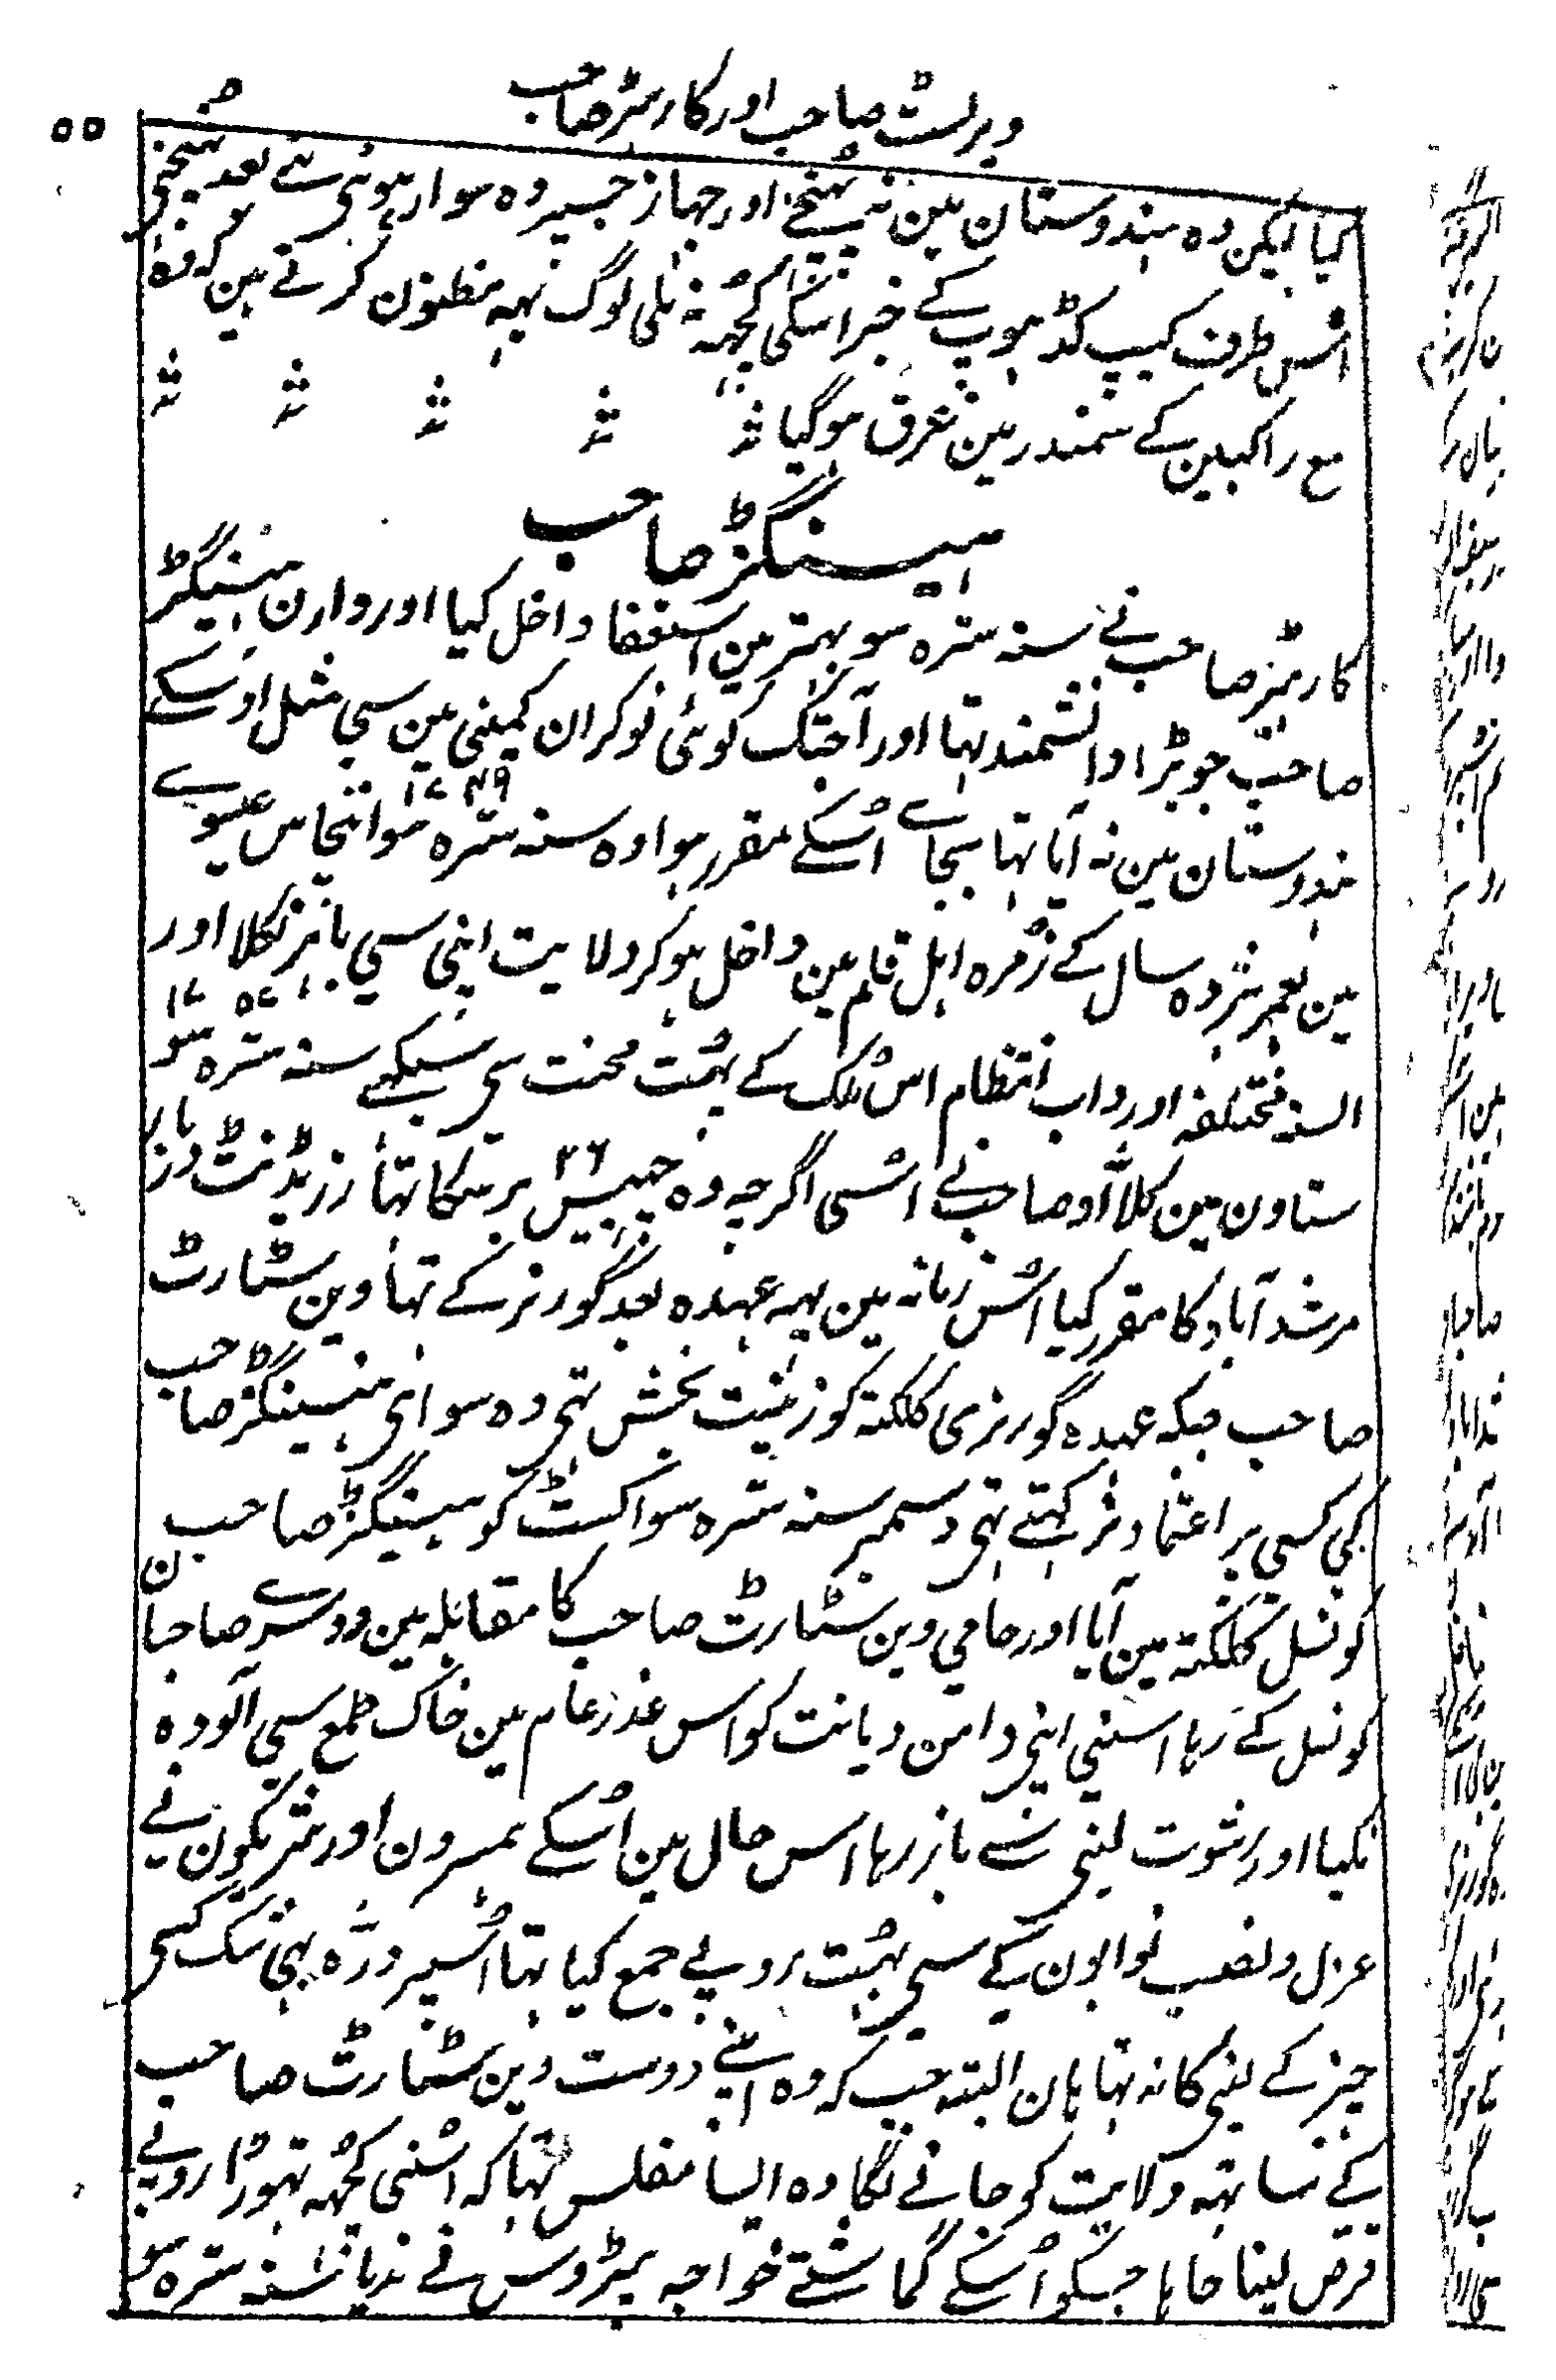 ویرلسٹ صاحب اور کارٹیر صاحب
۵۵
کیا لیکن وہ ہندوستان مین نہ پہنچے اور جہاز جسپر وہ سوار ہوئی تہے بعد پہنچنی
اُس طرف کیپ گڈ ہوپ کے خبر اسکی کچہہ نہ ملی لوگ یہہ مظنون کرتے ہین کہ وہ
مع راکبین کے سمندر مین غرق ہو گیا
ہیسٹنگز صاحب
کارٹیر صاحب نے سنہ سترہ سو بہتر مین استعفا داخل کیا اور وارن ہیسٹنگز
صاحب جو بڑا دانشمند تہا اور آجتک کوئی نوکران کمپنی مین سی مثل اوسکے
ہندوستان مین نہ آیا تہا بجاے اُسکے مقرر ہوا وہ سنہ سترہ سو انچاس ۱۷۴۹ عیسوے
مین بعمر ہژدہ سال کے زمرہ اہل قلم مین داخل ہو کر ولایت اپنی سی باہر نکلا اور
السنہ مختلفہ اور داب انتظام اس ملک کے بہت محنت سی سیکہے سنہ سترہ سو ۱۷۵۷
ستاون مین کلایو صاحب نے اسی اگرچہ وہ چہبیس ۲۶ برسکا تہا رزیڈنٹ دربار
مرشد آباد کا مقرر کیا اُس زمانہ مین یہہ عہدہ بعد گورنر کے تہا وین سٹارٹ
صاحب جبکہ عہدہ گورنری کلکتہ کو زینت بخش تہی وہ سوای ہیسٹنگز صاحب
کی کسی پر اعتماد نرکہتے تہی دسمبر سنہ سترہ سو اکسٹ کو ہیسٹنگز صاحب
کونسل کلکتہ مین آیا اور حامی وین سٹارٹ صاحب کا مقابلہ مین دوسرے صاحبان
کونسل کے رہا اسنی اپنی دامن دیانت کو اس غدر عام مین خاک طمع سی آلودہ
نکیا اور رشوت لینی سے باز رہا اس حال مین اُسکے ہمسرون اور شریکون نے
عزل و نصب نوابون کے سی بہت روپے جمع کیا تہا اُسپر ذرہ بہی شک کسی
چیز کے لینی کا نہ تہا ہان البتہ جب کہ وہ اپنے دوست وین سٹارٹ صاحب
کے ساتہہ ولایت کو جانے لگا وہ ایسا مفلس تہا کہ اُسنی کچہہ تہوڑا روپے
قرض لینا چاہا جسکو اُسکے گماشتے خواجہ پیڑوس نے ندیا سنہ سترہ سو